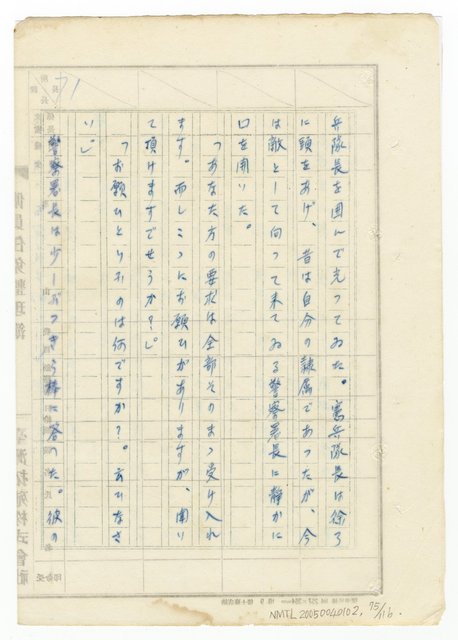 兵隊長を囲んで立つてゐた。憲兵隊長は徐ろ
に頭をあげ、昔は自分の隷属であつたが、今
は敵として向つて来てゐる警察署長に静かに
口を開いた。
「あなた方の要求は全部そのまゝ受け入れ
ます。而し一つにお願ひがありますが、聞い
て頂けますでせうか?」
「お願ひといふのは何ですか?。言ひなさ
い」
警察署長は少しぶつきら棒に答へた。彼の
71
NMTL20050040102, 75/116.